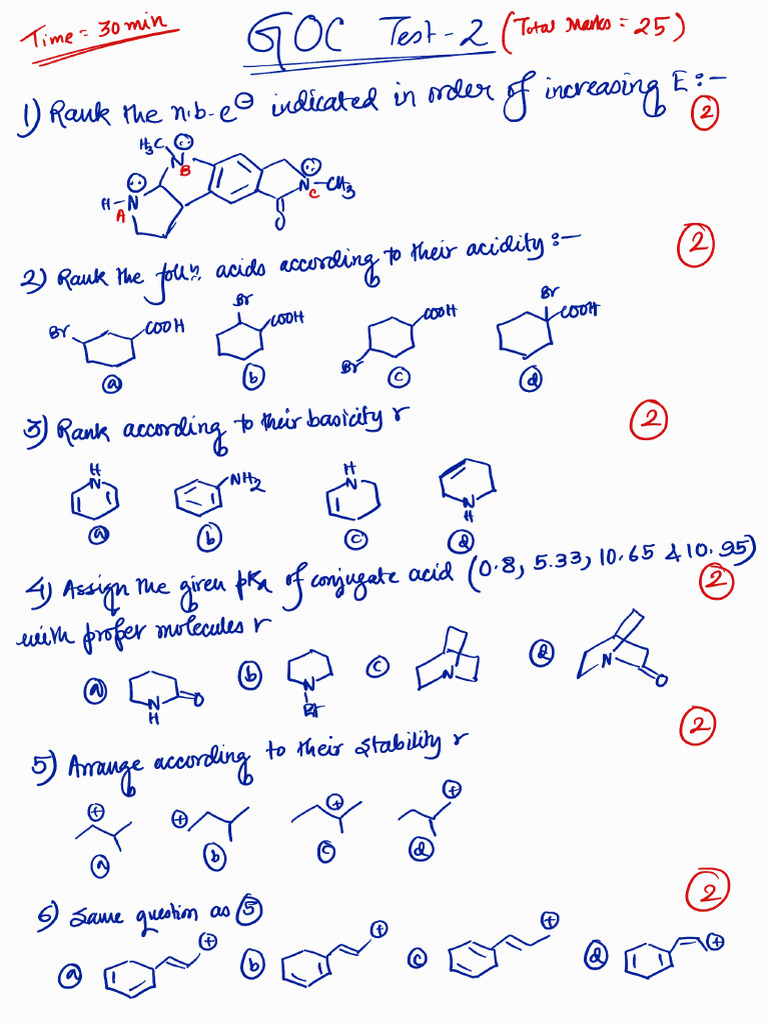 Time = 30 min
GOC Test-2 (Total Marks = 25)
1) Rank the n.b.e⊖ indicated in order of increasing E:-
2
H3C
N
B
H-N
A
N-CH3
C
O
2) Rank the foll.n. acids according to their acidity:-
2
Br COOH
Br COOH
COOH Br
Br COOH
a b c d
3) Rank according to their basicity
2
H N
NH2
H N
N H
a b c d
4) Assign the given pKa of conjugate acid (0.8, 5.33, 10.65 & 10.95)
2
with proper molecules
a N H O
b N Et
c N
d N O
5) Arrange according to their stability
2
+ + + +
a b c d
6) Same question as 5
2
a +
b +
c +
d +